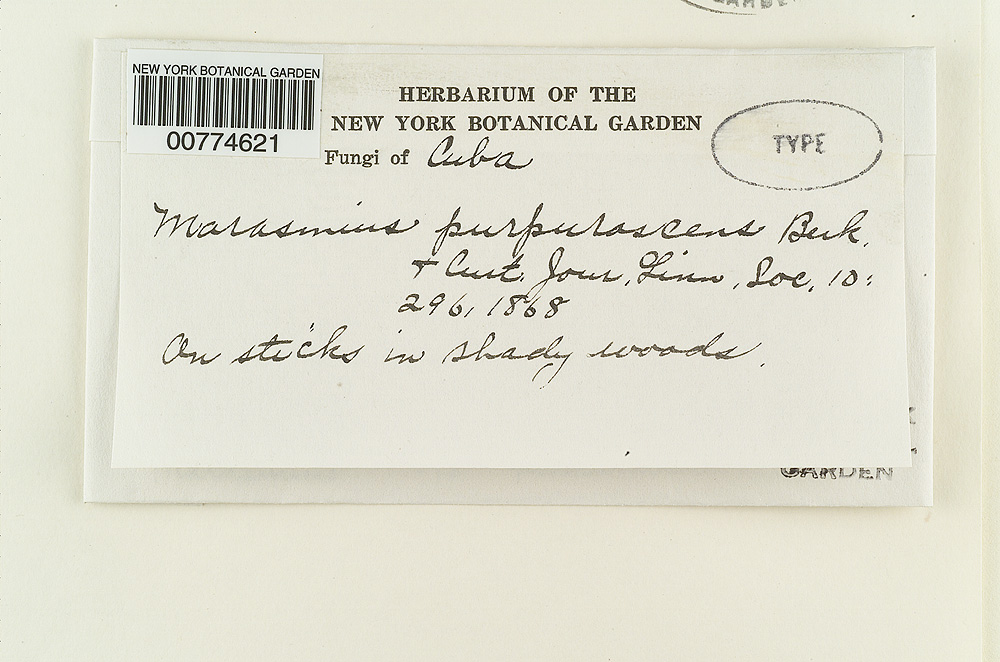 GARDEN
NEW YORK BOTANICAL GARDEN
00774621
HERBARIUM OF THE
NEW YORK BOTANICAL GARDEN
Fungi of Cuba
TYPE
Marasmius purpurascens Berk.
+ Curt. Jour. Linn. Soc. 10:
296, 1868
On sticks in shady woods.
GARDEN